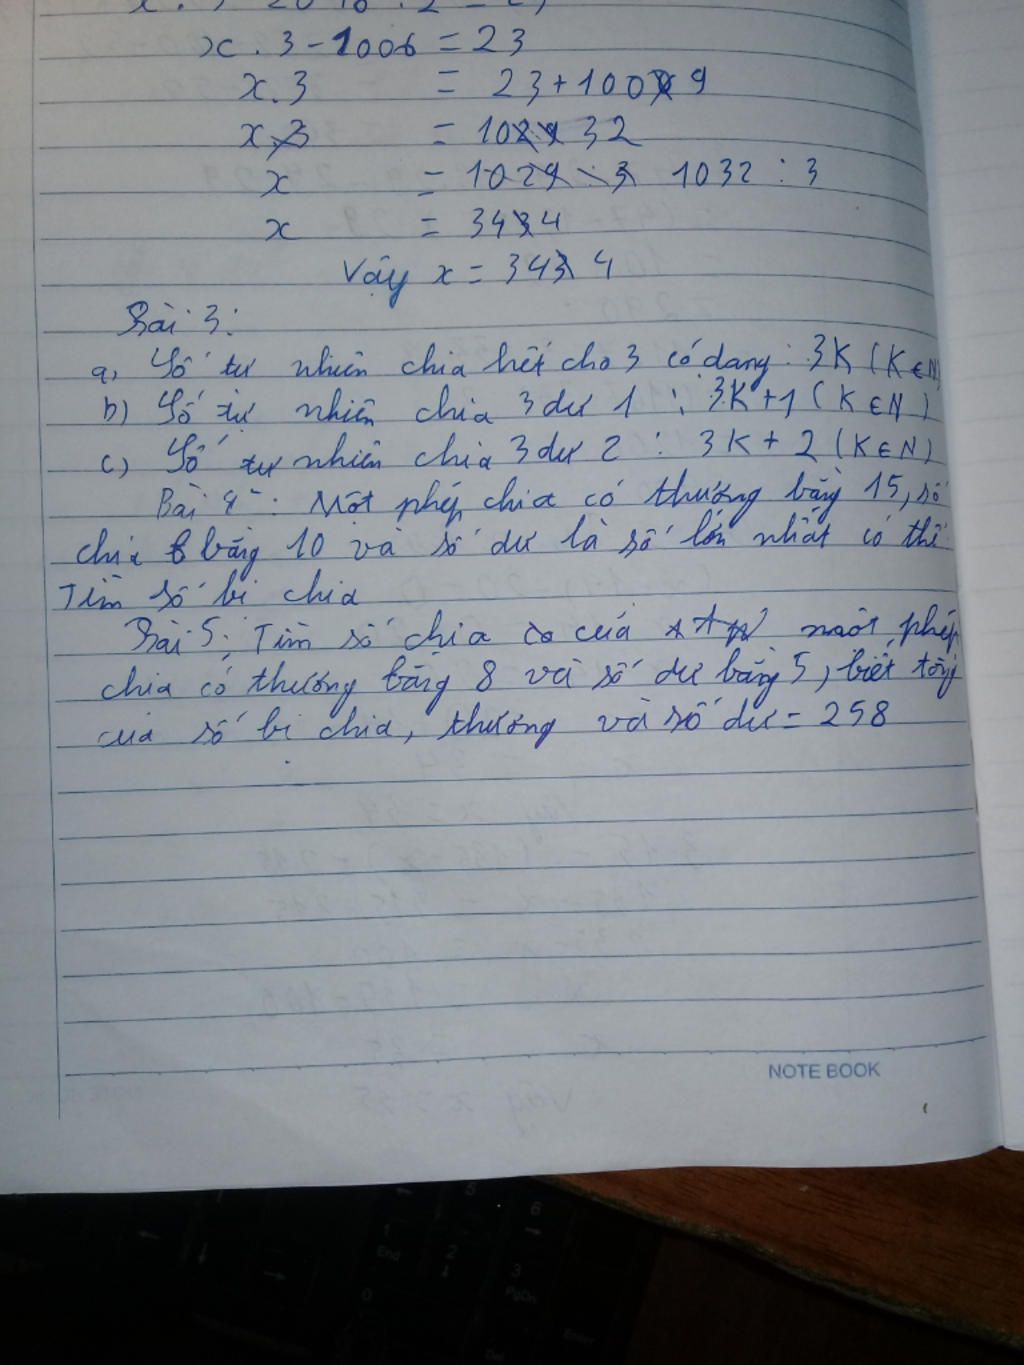 x . 3 - 1006 = 23
x . 3 = 23 + 100 9
x . 3 = 10 32
x = 1029 : 3 1032 : 3
x = 34 4
Vậy x = 34 4
Bài 3:
a, Số tự nhiên chia hết cho 3 có dạng : 3K (K ∈ N)
b) Số tự nhiên chia 3 dư 1 : 3K + 1 (K ∈ N)
c) Số tự nhiên chia 3 dư 2 : 3K + 2 (K ∈ N)
Bài 4 : Một phép chia có thương bằng 15, số
chia bằng 10 và số dư là số lớn nhất có thể
Tìm số bị chia
Bài 5: Tìm số chia của một phép
chia có thương bằng 8 và số dư bằng 5, biết tổng
của số bị chia, thương và số dư = 258
NOTE BOOK
End
2
3
PgDn
6
0
Enter
Del